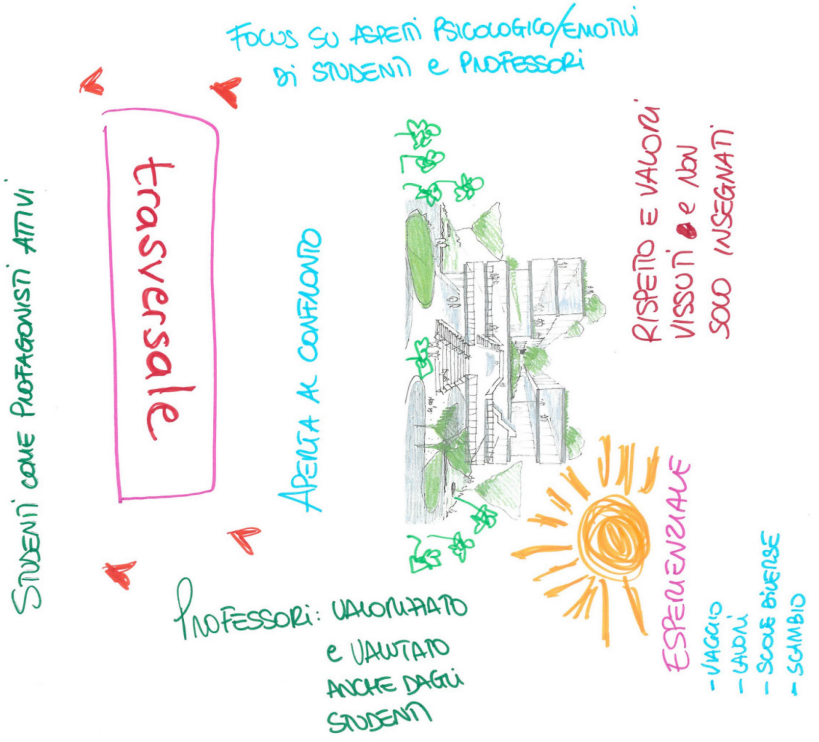 FOCUS SU ASPETTI PSICOLOGICO/EMOTIVI
DI STUDENTI e PROFESSORI
STUDENTI COME PROTAGONISTI ATTIVI
trasversale
APERTA AL CONFRONTO
RISPETTO E VALORI
VISSUTI e NON
SOLO INSEGNATI
PROFESSORI: VALORIZZATO
e VALUTATO
ANCHE DAGLI
STUDENTI
ESPERIENZIALE
- VIAGGIO
- LAVORI
- SCUOLE DIVERSE
- SCAMBIO